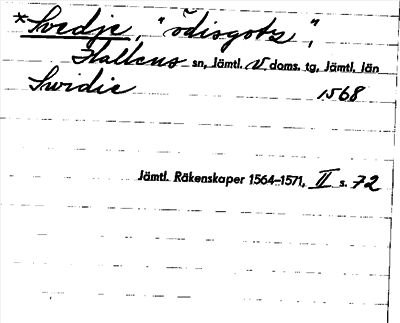 *Svedje, "ödisgotz",
Hallens sn, Jämtl. V doms. tg, Jämtl. län
Swidie 1568
Jämtl. Räkenskaper 1564-1571, II s. 72